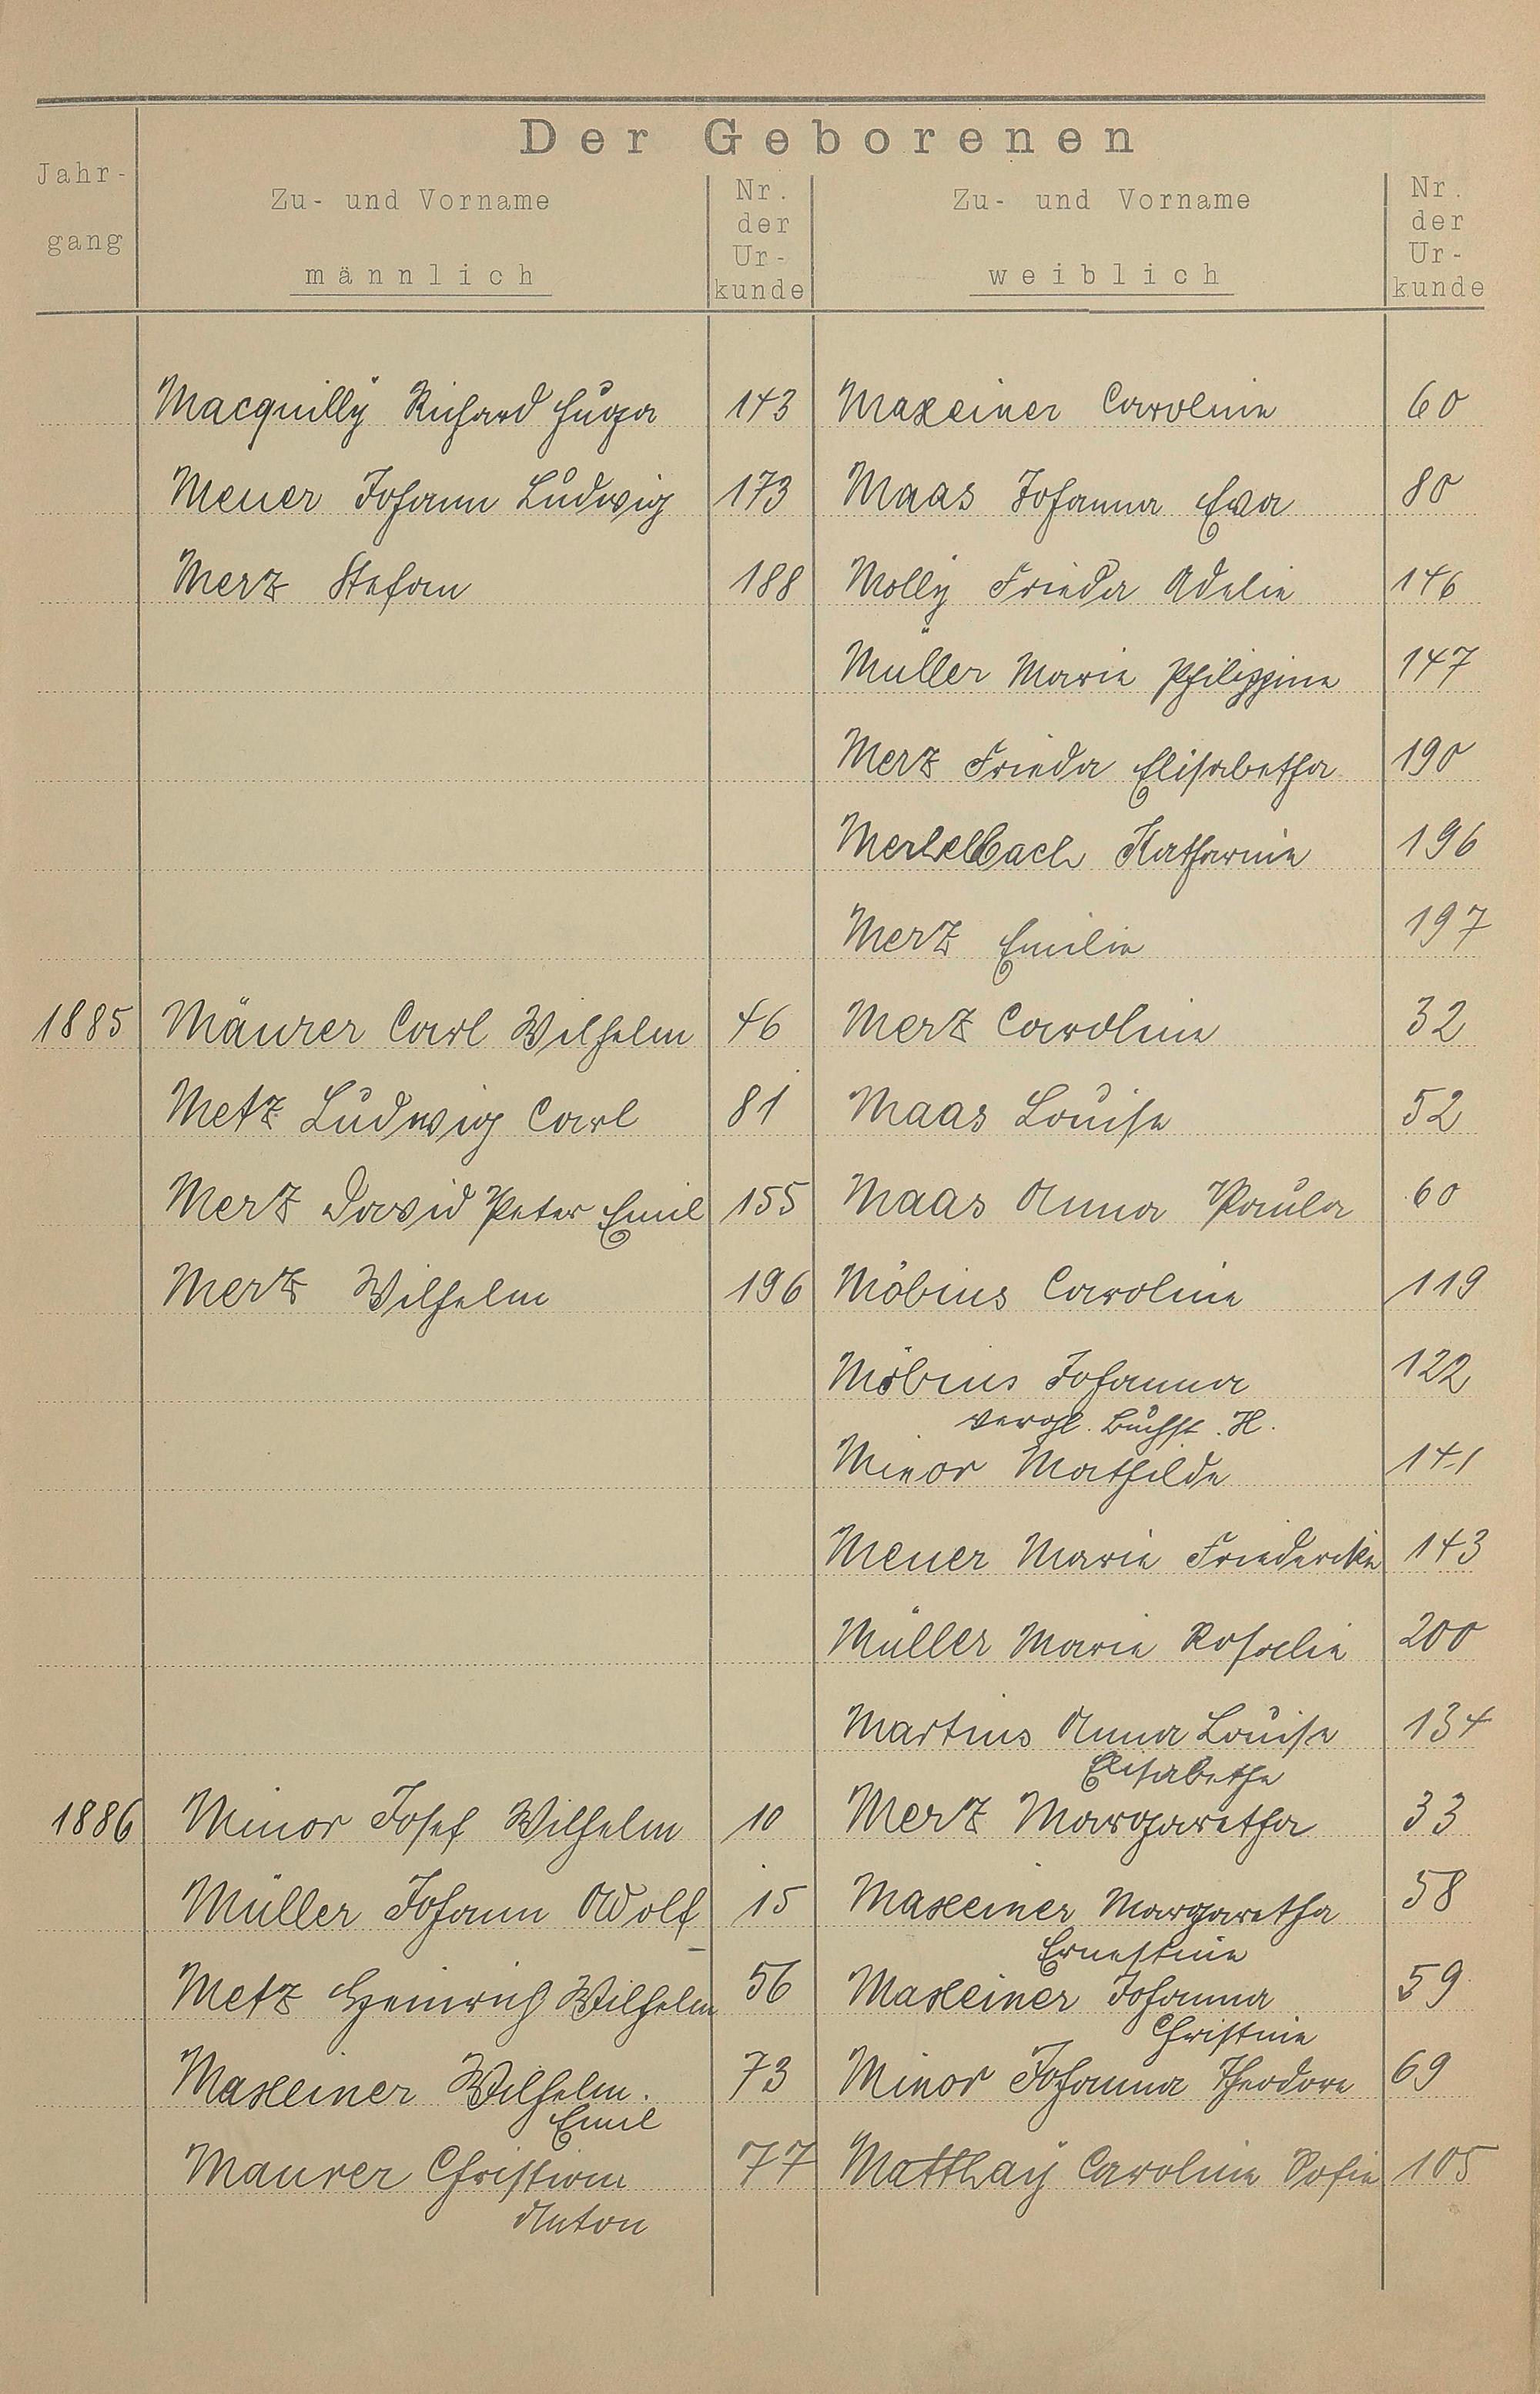 Der Geborenen
Jahr-
gang
Zu- und Vorname
männlich
Nr.
der
Ur-
kunde
Zu- und Vorname
weiblich
Nr.
der
Ur-
kunde
Macquilly Richard Hugo 143 Maxeiner Caroline 60
Meuer Johann Ludwig 173 Maas Johanna Eva 80
Merz Stefan 188 Molly Frieda Adelie 146
Müller Marie Philippine 147
Merz Frieda Elisabetha 190
Merkelbach Katharine 196
Merz Emilie 197
1885 Mäurer Carl Wilhelm 46 Merz Caroline 32
Metz Ludwig Carl 81 Maas Louise 52
Merz David Peter Emil 155 Maas Anna Paula 60
Merz Wilhelm 196 Möbius Caroline 119
Möbius Johanna 122
vergl. Buchst. H.
Minor Mathilde 141
Meuer Marie Friederike 143
Müller Marie Rosalie 200
Martius Anna Louise 134
Elisabethe
1886 Minor Josef Wilhelm 10 Merz Margaretha 33
Müller Johann Adolf 15 Maxeiner Margaretha 58
Ernestine
Metz Heinrich Wilhelm 56 Maxeiner Johanna 59
Christine
Maxeiner Wilhelm. 73 Minor Johanna Theodore 69
Emil
Maurer Christian 77 Matthay Caroline Sofie 105
Anton